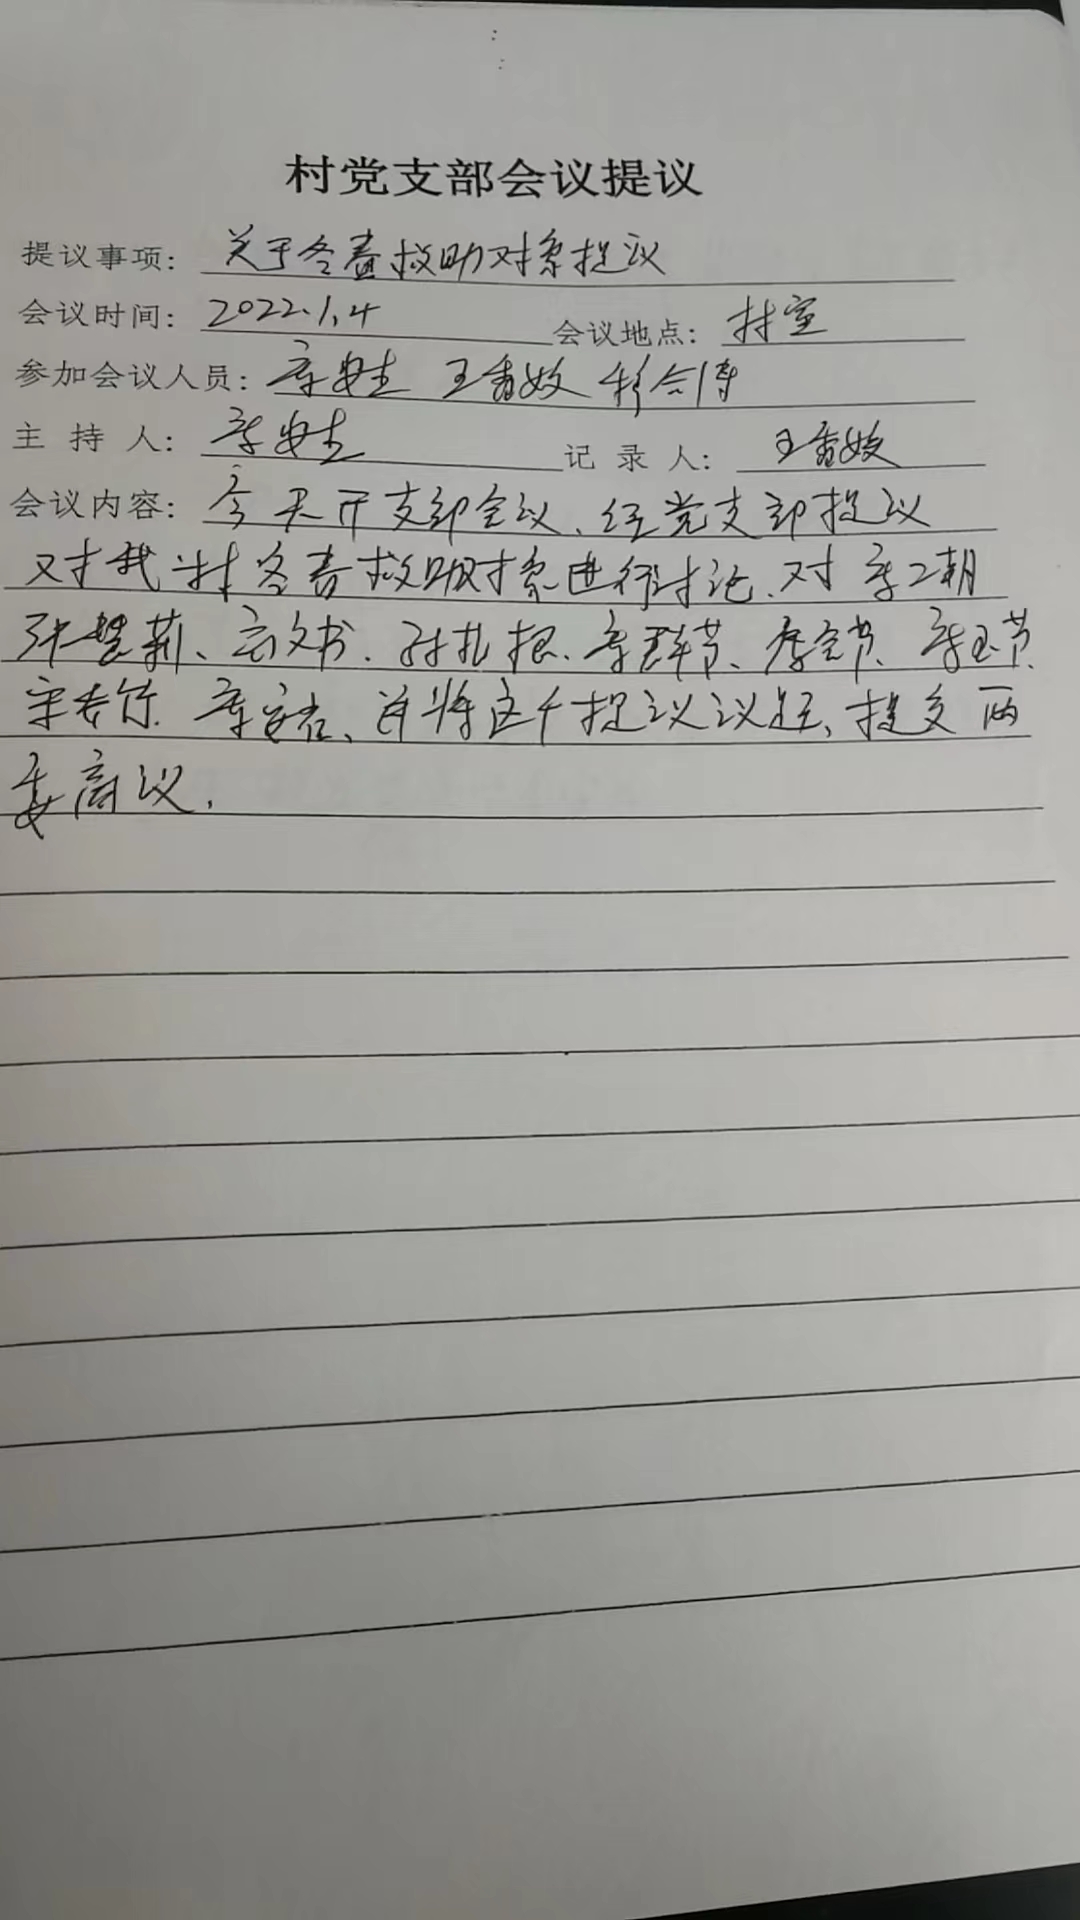 村党支部会议提议
提议事项：关于冬春救助对象提议
会议时间：2022.1.4 会议地点：村室
参加会议人员：李安生 王香姣
主持人：李安生 记录人：王香姣
会议内容：今天开支部会议、经党支部提议
对我村冬春救助对象进行讨论、对李二朝
张慧莉、高文书、孙扎根、李群节、李宝节、李玉节、
宋长作、李、并将这个提议议题、提交两
委商议.